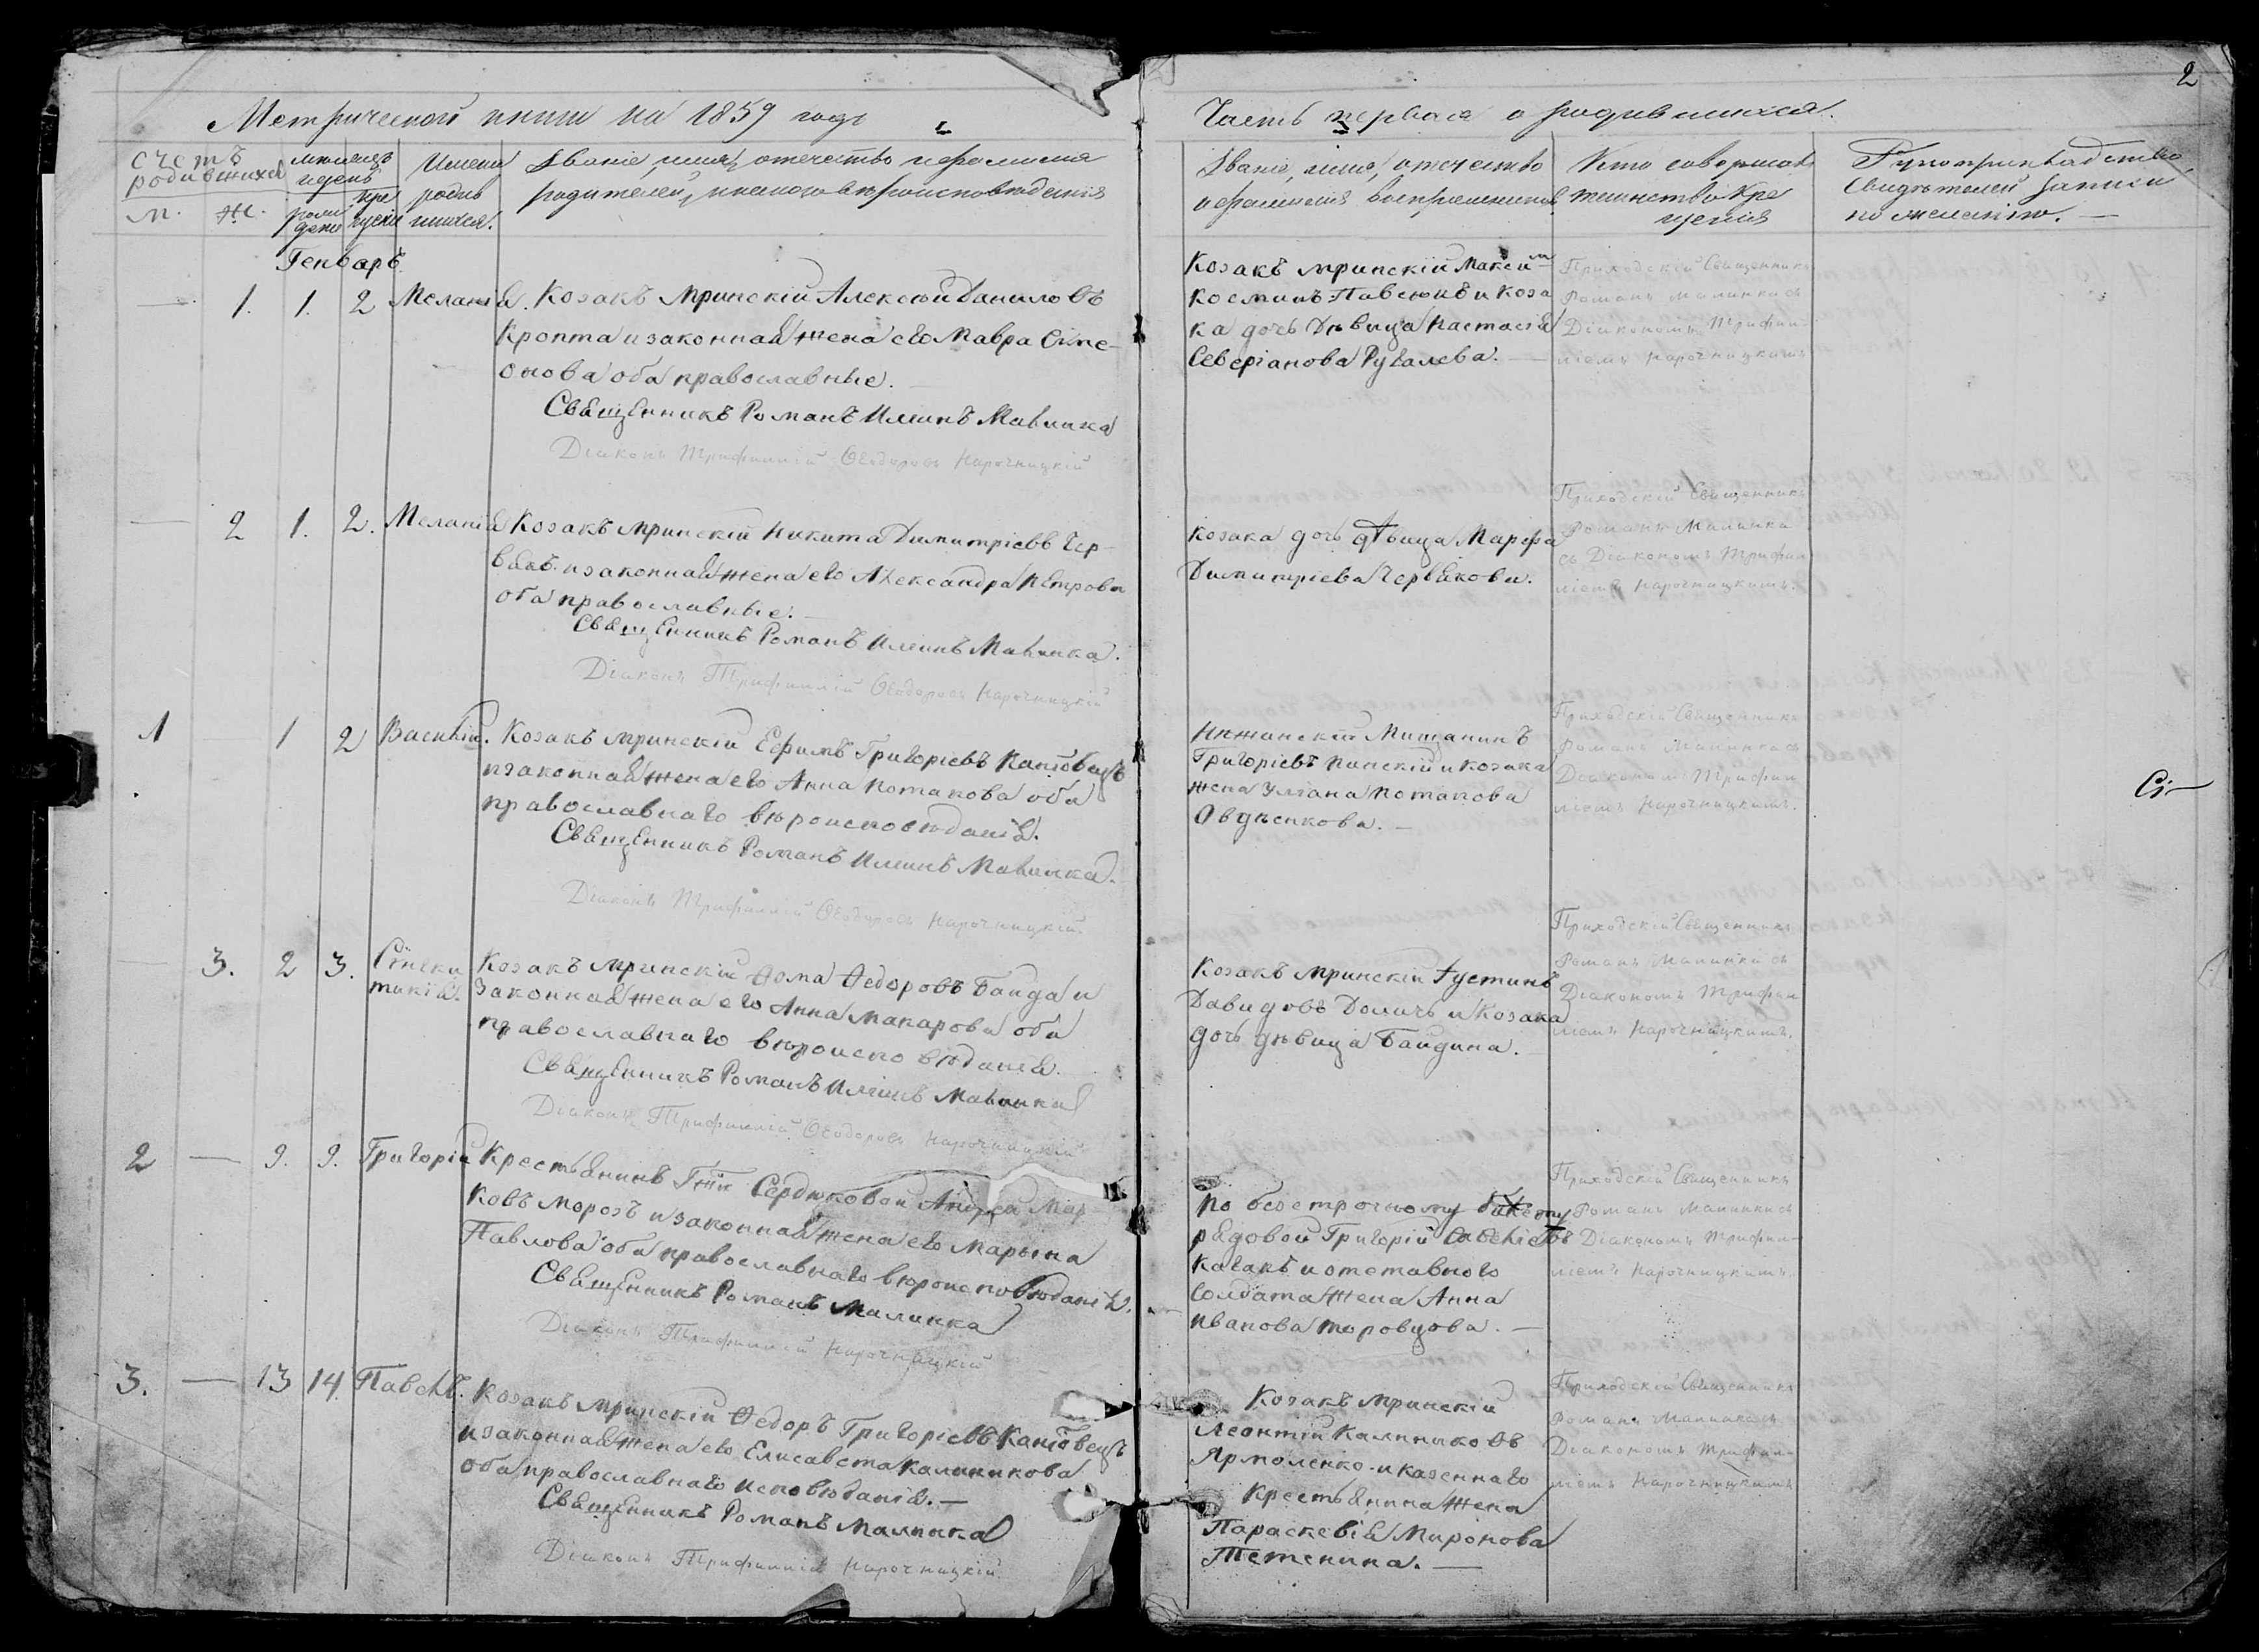 2
Метрической книги на 1859 годъ
Часть первая о родившихся.
Счетъ родившихся
М.
Ж.
мѣсяцъ и день
рождения
крещенія
Имена родившихся.
Званіе, имя, отчество и фамилія
родителей, и какого вѣроисповѣданія
Званіе, имя, отчество
и фамилія воспріемниковъ
Кто совершалъ
таинство Кре
щенія
Рукоприкладство
свидѣтелей записи
по желанію. —
Генварь
— 1. 1. 2 Меланія
Козакъ Мринскій Алексѣй Даниловъ
Кропта и законная жена его Мавра Симе-
онова оба православные.
Священникъ Романъ Илиинъ Малинка
Діаконъ Трифиллій Ѳеодоровъ Нарочницкій
Козакъ мринскій Максим
Косминъ Павсюкъ и Коза
ка дочь дѣвица Настасія
Северіанова Рухалева. —
Приходскій Священникъ
Романъ Малинка съ
Діакономъ Трифил-
ліемъ Нарочницкимъ
— 2 1. 2. Меланія
Козакъ мринскій Никита Димитріевъ Чер-
вякъ и законная жена его Александра Петрова
оба православные. —
Священникъ Романъ Илиинъ Малинка.
Діаконъ Трифиллій Ѳеодоровъ Нарочницкій
Козака дочь дѣвица Марфа
Димитріева Червякова.
Приходскій Священникъ
Романъ Малинка
съ Діакономъ Трифил
ліемъ Нарочницкимъ.
1 — 1 2 Василій.
Козакъ мринскій Ефимъ Григоріевъ
и законная жена его Анна Потапова оба
православнаго вѣроисповѣданія.
Священникъ Романъ Илиинъ Малинка.
Діаконъ Трифиллій Ѳеодоровъ Нарочницкій
Нѣжинскій Мищанинъ
Григоріевъ и козака
жена Уліана Потапова
Овдѣенкова. —
Приходскій Священникъ
Романъ Малинка съ
Діакономъ Трифил
ліемъ Нарочницкимъ.
— 3. 2 3. Сѵнкли
тикія.
Козакъ мринскій Ѳома Ѳедоровъ Байда и
законная жена его Анна Макарова оба
православнаго вѣроисповѣданія.
Священникъ Романъ Илиинъ Малинка
Діаконъ Трифиллій Ѳеодоровъ Нарочницкій
Козакъ мринскій Густинъ
Давидовъ Доличъ и Козака
дочь дѣвица Байдина.
Приходскій Священникъ
Романъ Малинка съ
Діакономъ Трифил
ліемъ Нарочницкимъ.
2 — 9. 9. Григорій
Крестьянинъ Гжи Сердюковой Андрей Мар-
ковъ Морозъ и законная жена его Марьяна
Павлова оба православнаго вѣроисповѣданія.
Священникъ Романъ Малинка
Діаконъ Трифиллій Нарочницкій
По безсрочному билету
рядовой Григорій Савеліевъ
и отставного
Солдата жена Анна
Иванова
Приходскій Священникъ
Романъ Малинка съ
Діакономъ Трифил-
ліемъ Нарочницкимъ
3. — 13 14. Павелъ.
Козакъ мринскій Ѳедоръ Григоріевъ
и законная жена его Елисавета Калиникова
оба православнаго исповѣданія. —
Священникъ Романъ Малинка
Діаконъ Трифиллій Нарочницкій
Козакъ мринскій
Леонтій Калиниковъ
Ярмоленко и казеннаго
Крестьянина жена
Параскевія Миронова
Тетенина. —
Приходскій Священникъ
Романъ Малинка съ
Діакономъ Трифил-
ліемъ Нарочницкимъ